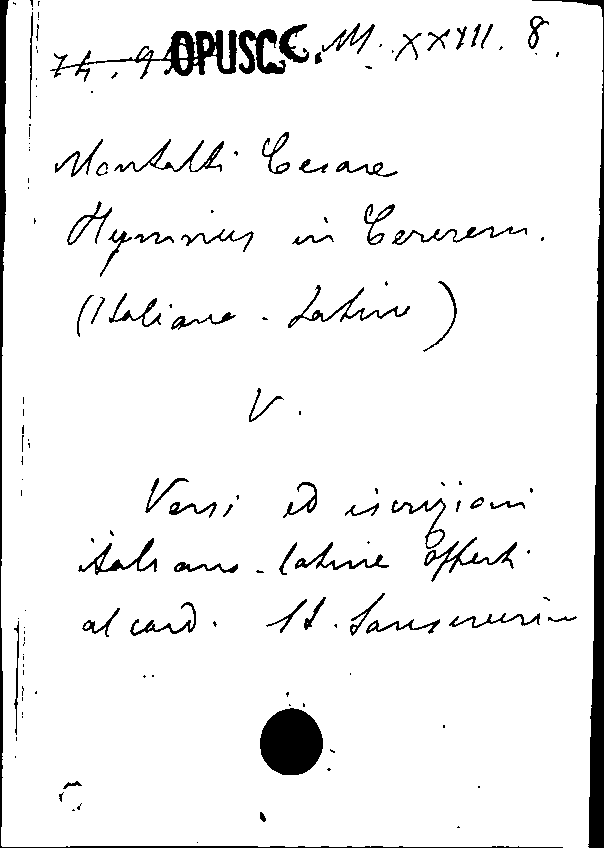 74. 9 OPUSC. M. XXIII. 8.
Montalti Cesare
Hymnus in Cererem.
(Italiano - latine)
V.
Versi ed iscrizioni
italiano - latine offerti
al card. St. Sanseverin